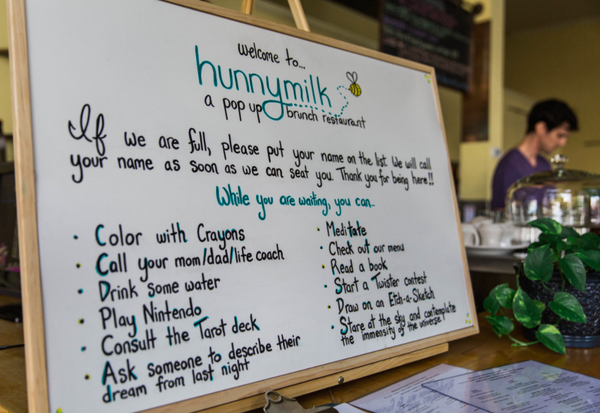 welcome to...
hunnymilk
a pop up brunch restaurant
If we are full, please put your name on the list. We will call
your name as soon as we can seat you. Thank you for being here!!
While you are waiting, you can...
• Color with Crayons
• Call your mom/dad/life coach
• Drink some water
• Play Nintendo
• Consult the Tarot deck
• Ask someone to describe their
dream from last night
• Meditate
• Check out our menu
• Read a book
• Start a Twister contest
• Draw on an Etch-a-Sketch
• Stare at the sky and contemplate
the immensity of the universe!